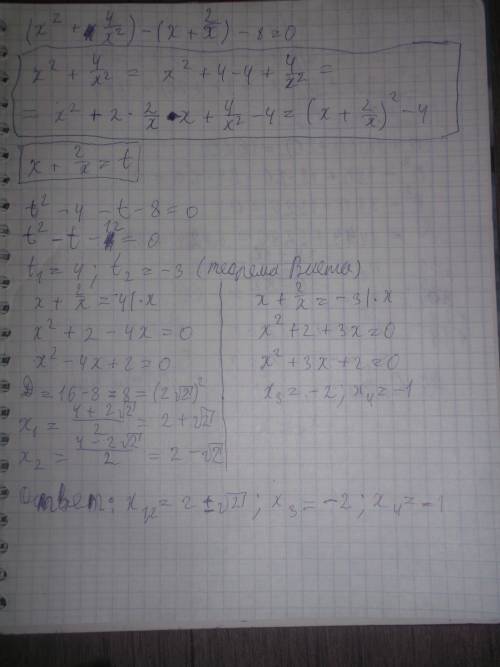 (x² + 4/x²) - (x + 2/x) - 8 = 0
x² + 4/x² = x² + 4 - 4 + 4/x² =
= x² + 2 · 2/x · x + 4/x² - 4 = (x + 2/x)² - 4
x + 2/x = t
t² - 4 - t - 8 = 0
t² - t - 12 = 0
t₁ = 4; t₂ = -3 (теорема Виета)
x + 2/x = 4 | · x
x² + 2 - 4x = 0
x² - 4x + 2 = 0
D = 16 - 8 = 8 = (2√2)²
x₁ = (4 + 2√2)/2 = 2 + √2
x₂ = (4 - 2√2)/2 = 2 - √2
x + 2/x = -3 | · x
x² + 2 + 3x = 0
x² + 3x + 2 = 0
x₃ = -2; x₄ = -1
Ответ: x₁,₂ = 2 ± √2; x₃ = -2; x₄ = -1